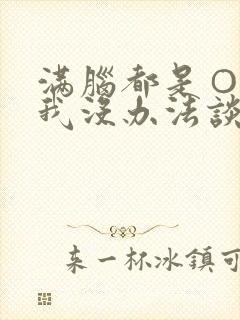 滿腦都是○
我沒办法談
来一杯冰鎮可